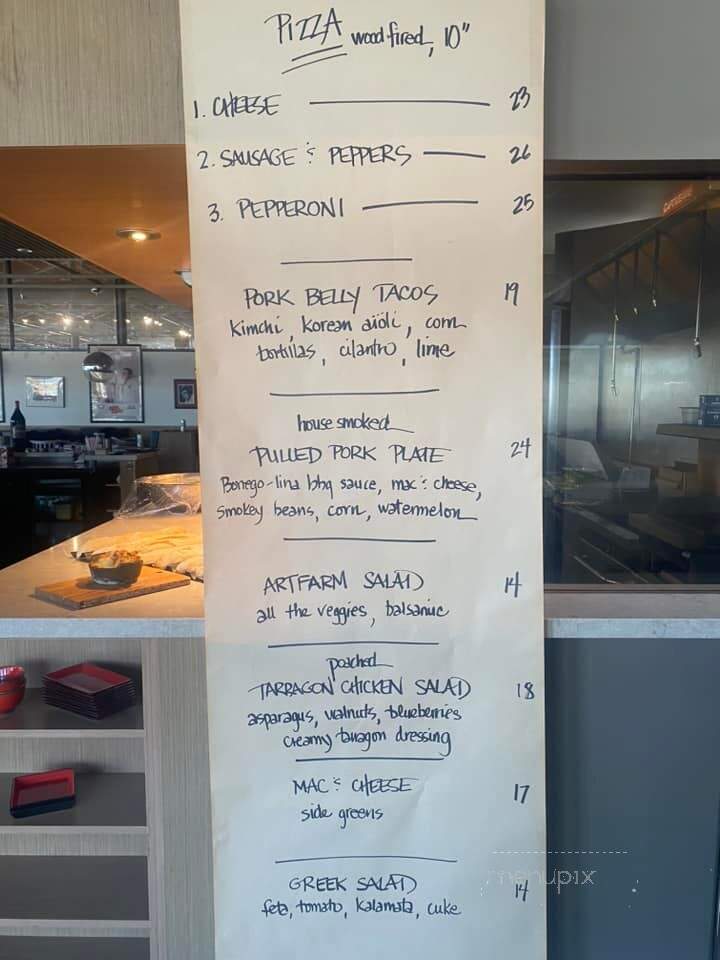 PIZZA wood fired, 10"
1. CHEESE 23
2. SAUSAGE & PEPPERS 26
3. PEPPERONI 25
PORK BELLY TACOS 19
kimchi, korean aioli, corn
tortillas, cilantro, lime
house smoked
PULLED PORK PLATE 24
Bonego-lina bbq sauce, mac & cheese,
smokey beans, corn, watermelon
ARTFARM SALAD 14
all the veggies, balsamic
poached
TARRAGON CHICKEN SALAD 18
asparagus, walnuts, blueberries
creamy tarragon dressing
MAC & CHEESE 17
side greens
GREEK SALAD 14
feta, tomato, kalamata, cuke
menupix